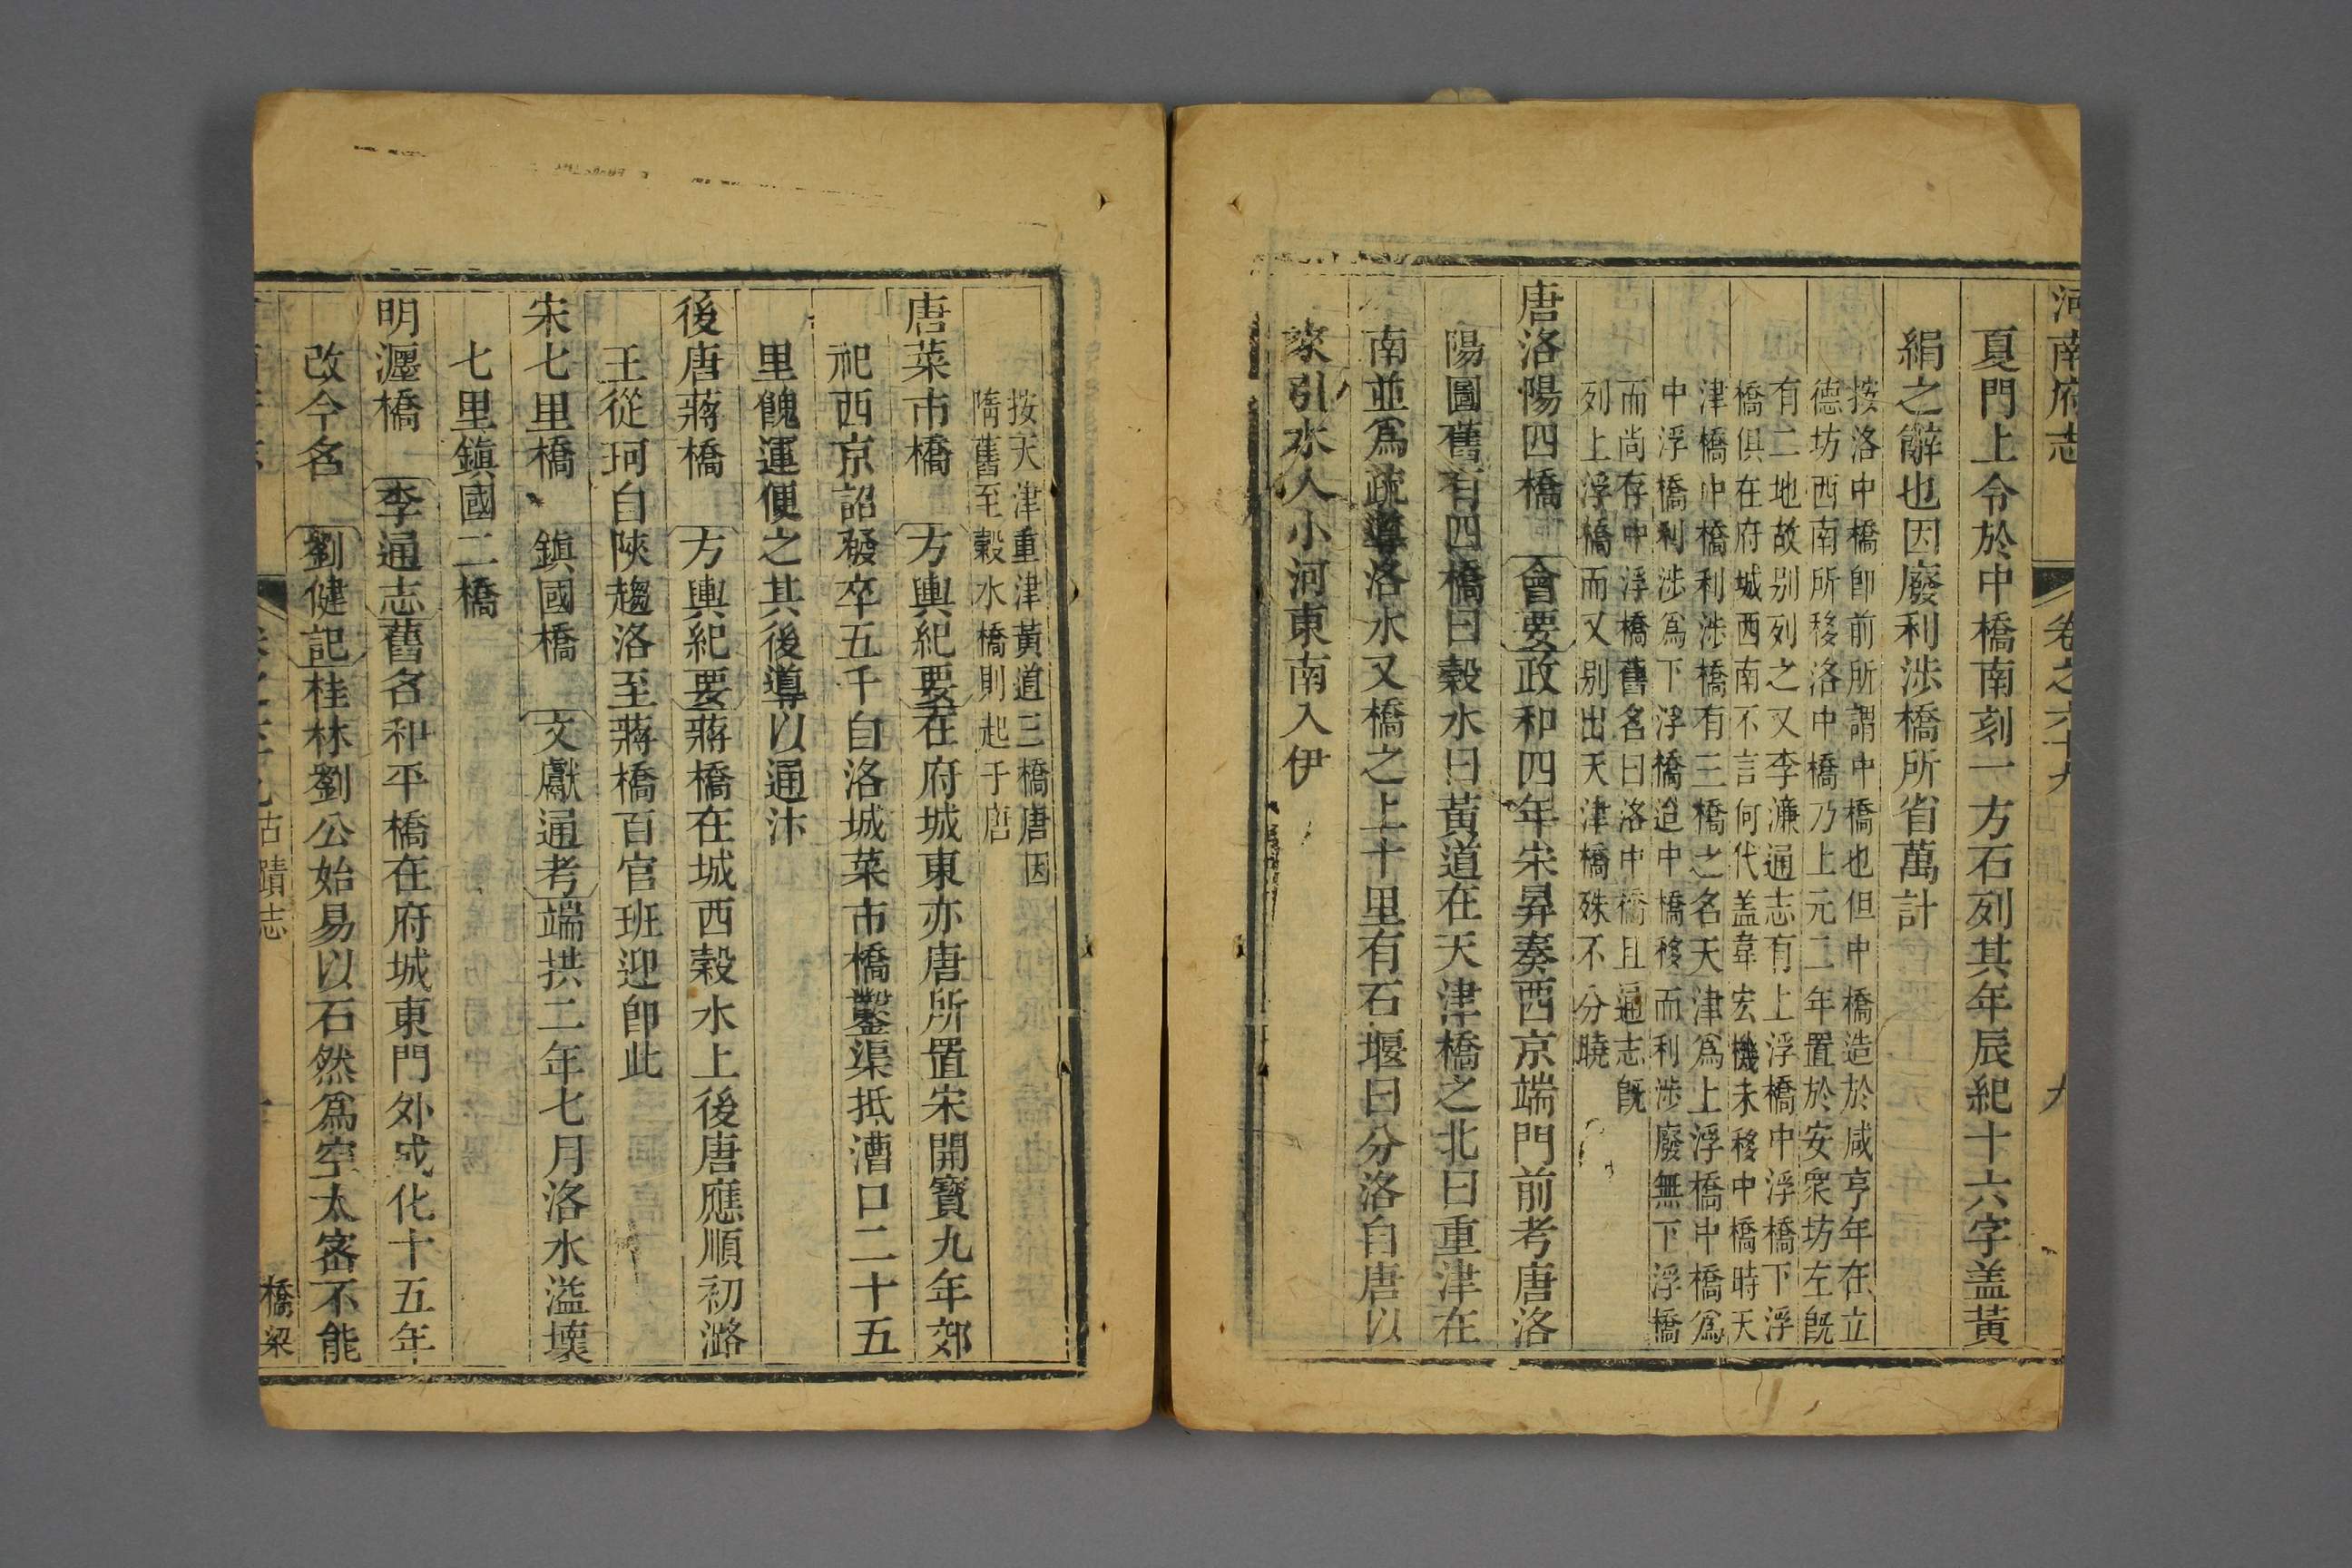 河南府志 卷之六十九 九
夏門上令於中橋南刻一方石列其年辰紀十六字盖黃
絹之辭也因廢利涉橋所省萬計
按洛中橋卽前所謂中橋也但中橋造於咸亨年在立
德坊西南所移洛中橋乃上元二年置於安衆坊左旣
有二地故别列之又李濂通志有上浮橋中浮橋下浮
橋俱在府城西南不言何代盖韋宏機未移中橋時天
津橋中橋利涉橋有三橋之名天津爲上浮橋中橋爲
中浮橋利涉爲下浮橋迨中橋移而利涉廢無下浮橋
而尚存中浮橋舊名曰洛中橋且通志旣
列上浮橋而又别出天津橋殊不分曉
唐洛陽四橋 會要政和四年宋昇奏西京端門前考唐洛
陽圖舊有四橋曰穀水曰黃道在天津橋之北曰重津在
南並爲疏導洛水又橋之上十里有石堰曰分洛自唐以
來引水入小河東南入伊
按天津重津黃道三橋唐因
隋舊至穀水橋則起于唐
唐菜市橋 方輿紀要在府城東亦唐所置宋開寶九年郊
祀西京詔發卒五千自洛城菜市橋鑿渠抵漕口二十五
里餽運便之其後導以通汴
後唐蔣橋 方輿紀要蔣橋在城西穀水上後唐應順初潞
王從珂自陝趨洛至蔣橋百官班迎卽此
宋七里橋 鎭國橋 文獻通考端拱二年七月洛水溢壞
七里鎭國二橋
明瀍橋 李通志舊名和平橋在府城東門外成化十五年
改今名 劉健記桂林劉公始易以石然爲空太密不能
古蹟志 橋梁